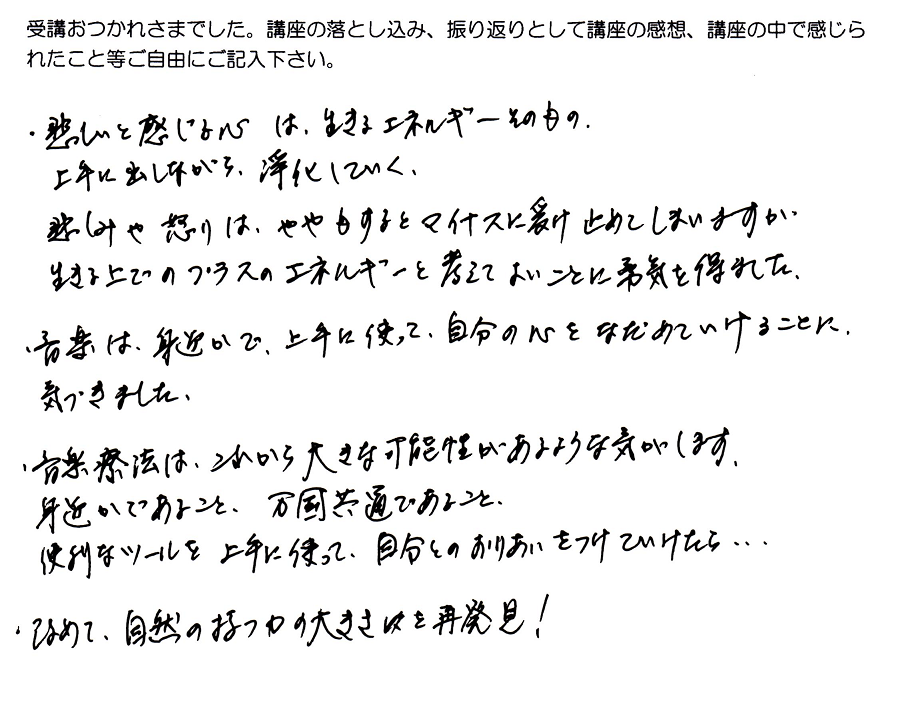 受講おつかれさまでした。講座の落とし込み、振り返りとして講座の感想、講座の中で感じら
れたこと等ご自由にご記入下さい。
・悲しいと感じる心は、生きるエネルギーそのもの.
上手に出しながら、浄化していく.
悲しみや怒りは、ややもするとマイナスに受け止めてしまいますが
生きる上でのプラスのエネルギーと考えてよいことに勇気を得ました.
・音楽は、身近かで、上手に使って、自分の心をなだめていけることに.
気づきました.
・音楽療法は、これから大きな可能性があるような気がします.
身近かであること、万国共通であること.
便利なツールを上手に使って、自分とのおりあいをつけていけたら・・・
・改めて、自然の持つ力の大きさを再発見!